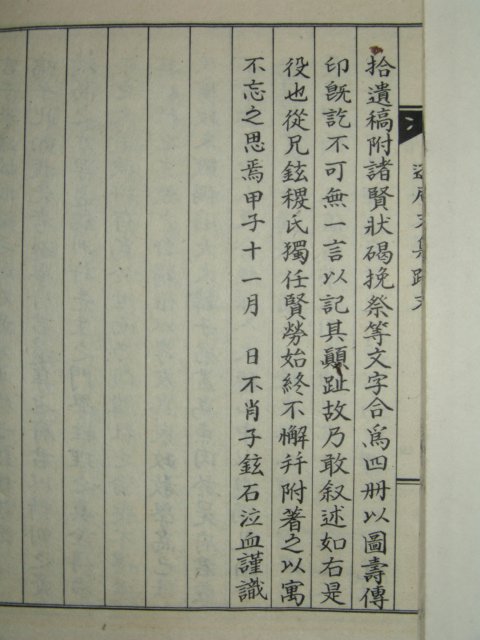 拾遺稿附諸賢狀碣挽祭等文字合爲四冊以圖壽傳
印旣訖不可無一言以記其顚趾故乃敢叙述如右是
役也從兄鉉稷氏獨任賢勞始終不懈幷附著之以寓
不忘之思焉甲子十一月 日不肖子鉉石泣血謹識
文集跋文